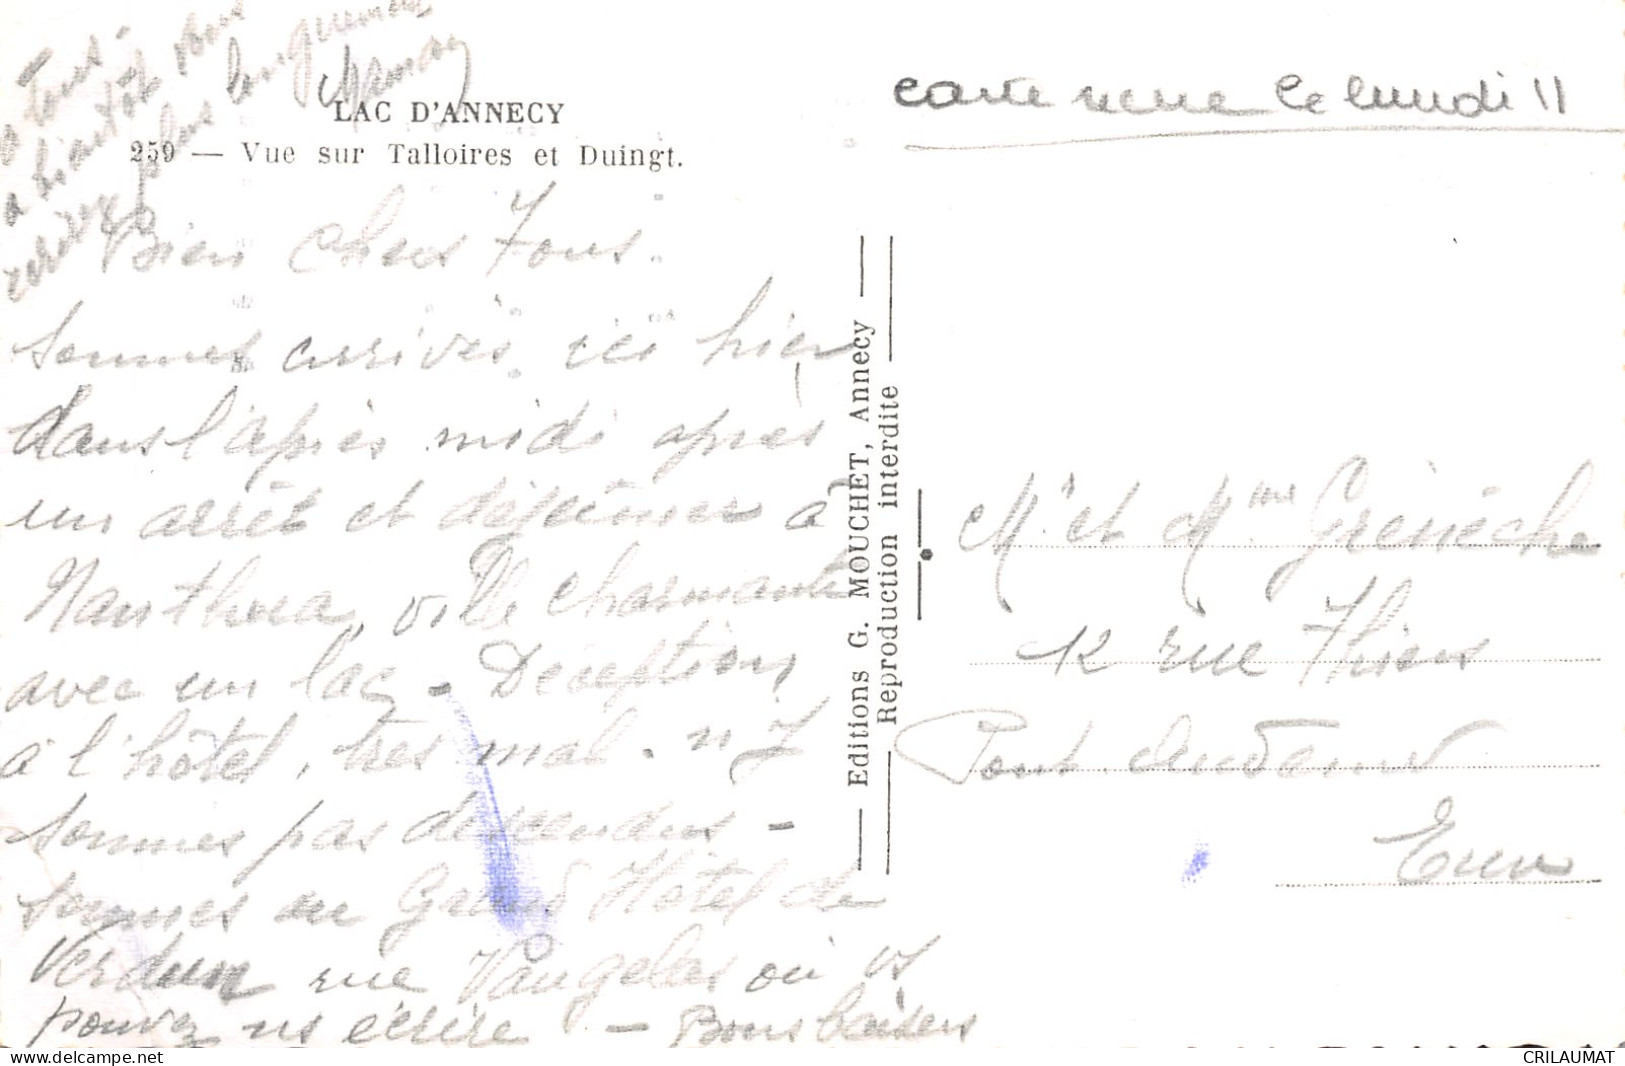 LAC D'ANNECY
259 — Vue sur Talloires et Duingt.
Bien chers Tous.
sommes arrivés ici hier
dans l'après midi après
un arrêt et déjeuner à
Nanthua, ville charmante
avec un lac - Déception
à l'hôtel, très mal. n' y
sommes pas descendus -
sommes au Grand Hôtel de
Verdun rue Vaugelas où vs
pouvez ns écrire - Bons baisers
à tous.
à bientôt vous
écrire plus longuement
Editions G. MOUCHET, Annecy
Reproduction interdite
carte reçue le lundi 11
Mr et Mme
12 rue Thiers
Pont Audemer
Eure
delcampe.net
CRILAUMAT